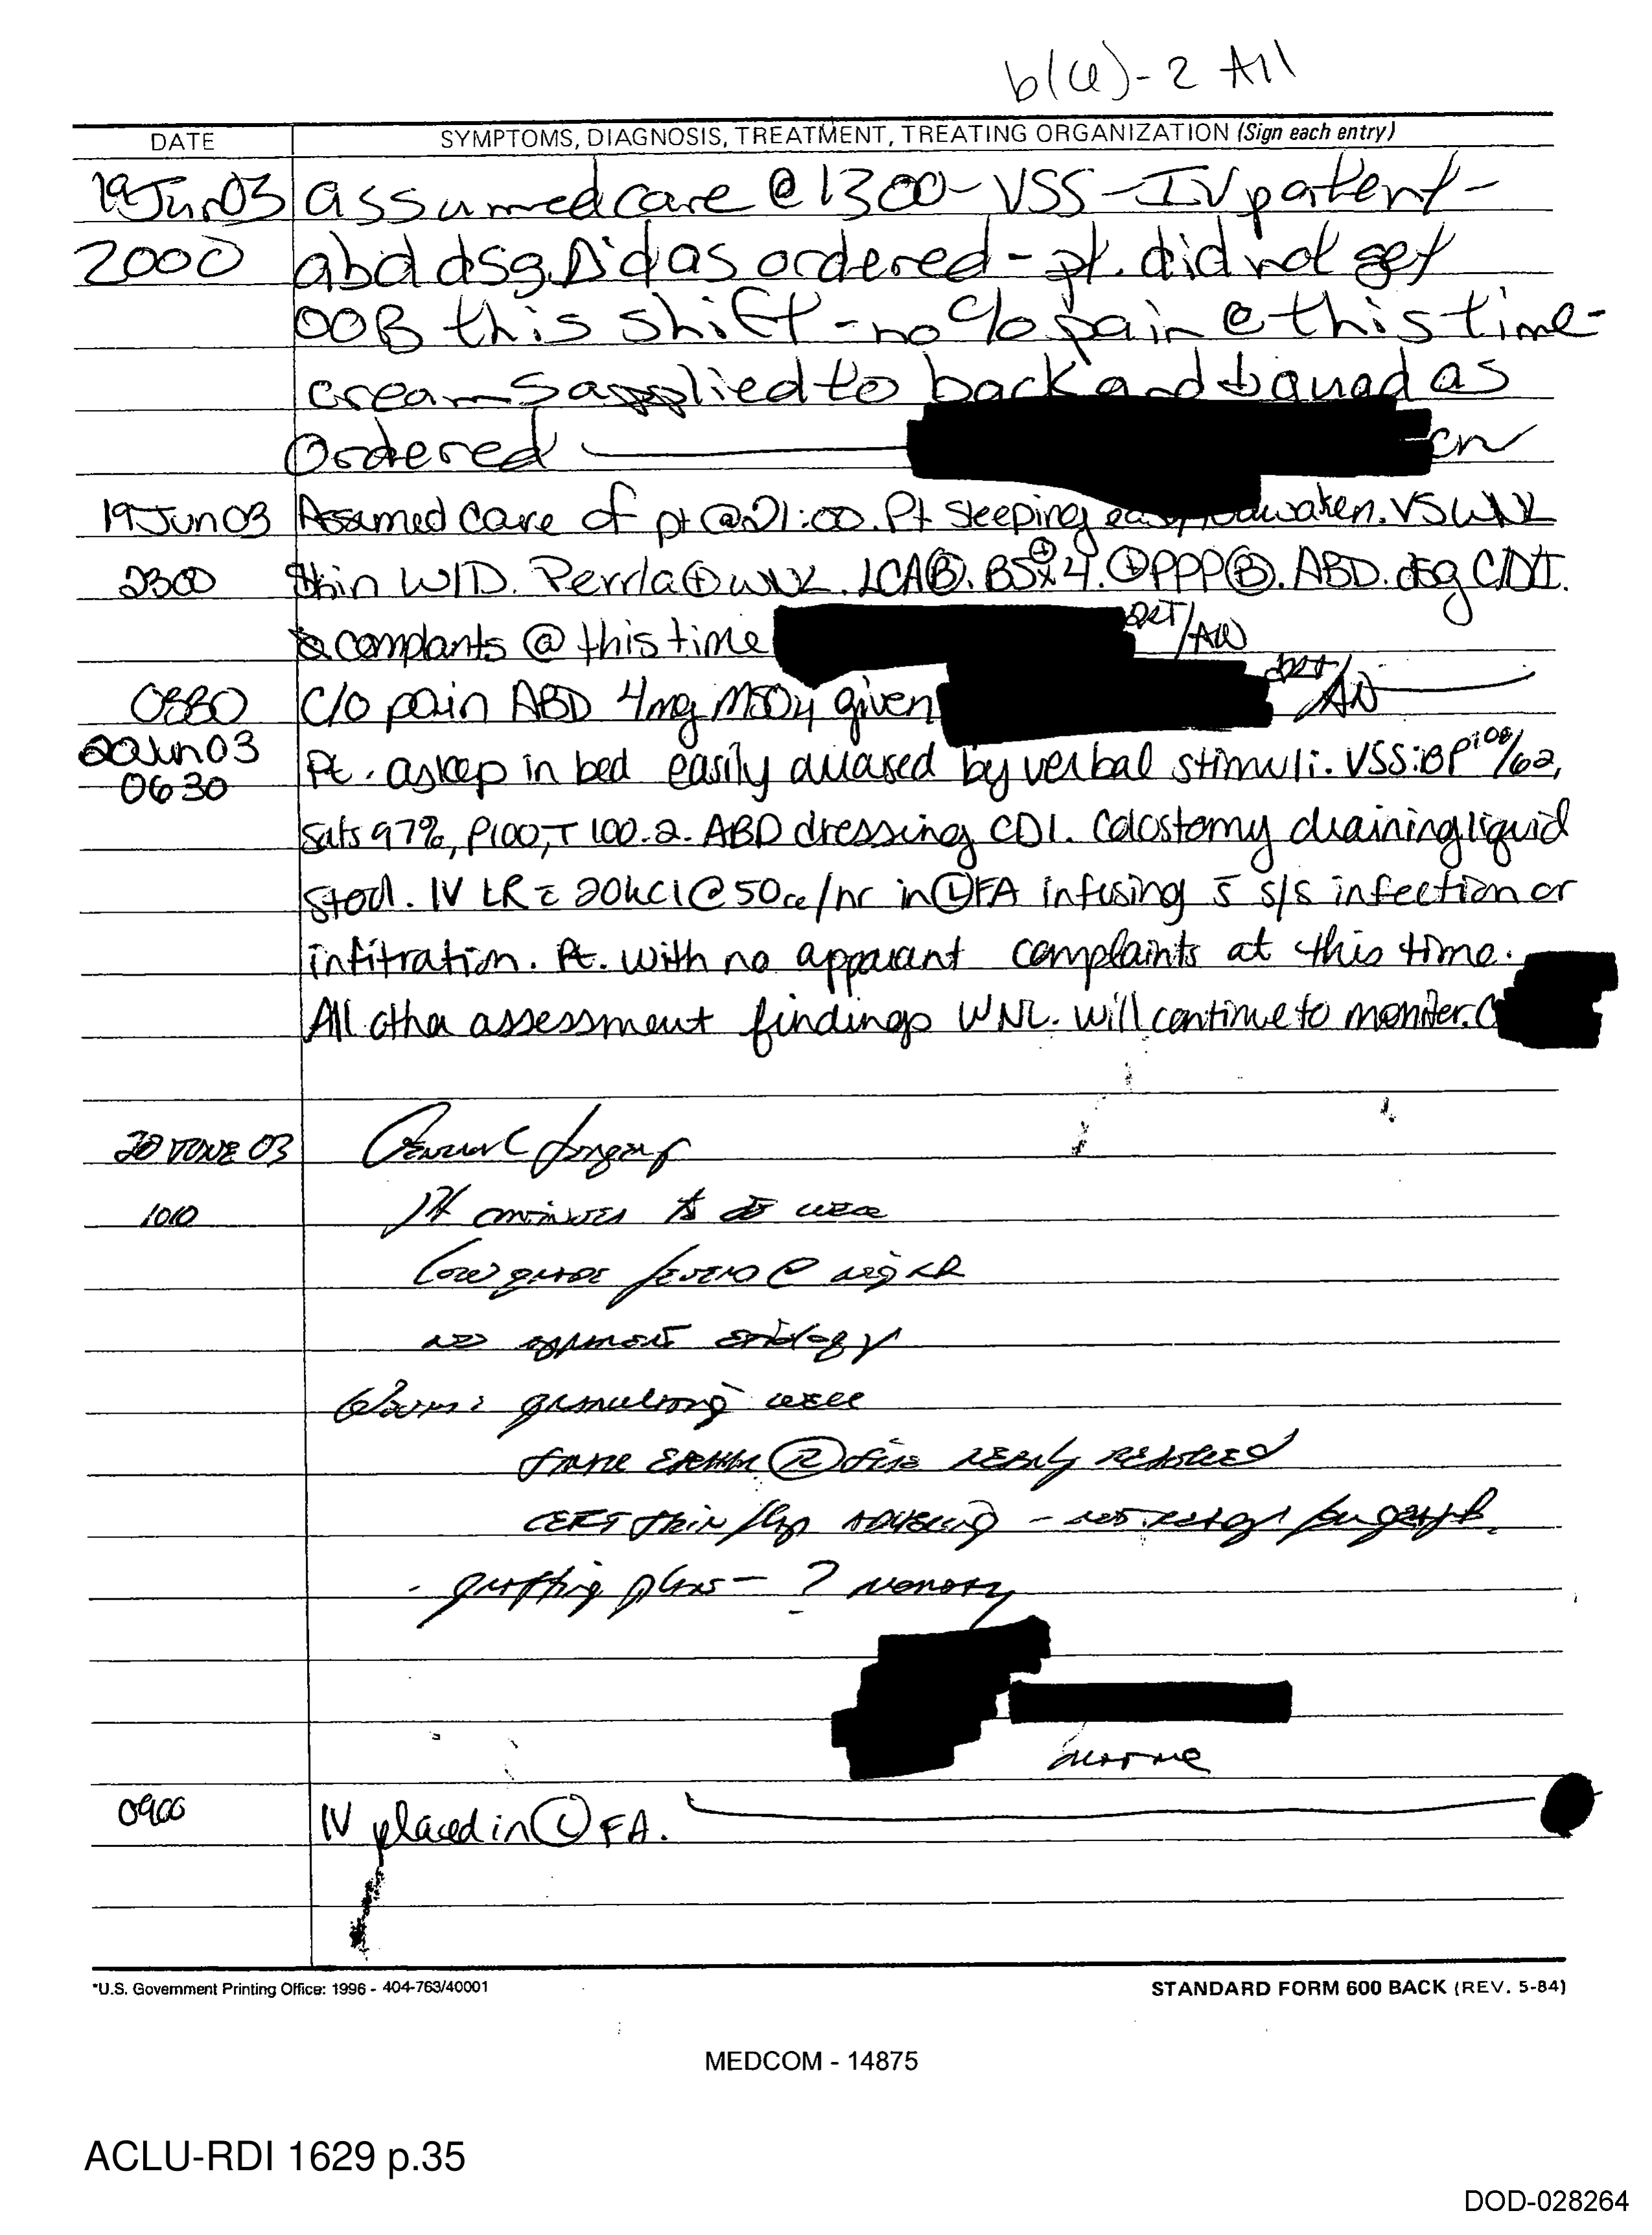 b(6)-2 All
DATE SYMPTOMS, DIAGNOSIS, TREATMENT, TREATING ORGANIZATION (Sign each entry)
19Jun03 assumed care @ 1300 - VSS - IV patent -
2000 abd dsg Δ'd as ordered - pt. did not get
OOB this shift - no c/o pain @ this time -
creams applied to back and quad as
Ordered
19Jun03 Assumed care of pt @ 21:00. Pt sleeping awaken. VSWNL
2300 Skin W/D. Perrla ⊕ WNL. LCAⒷ. BS⊕x4. ⊕PPPⒷ. ABD. dsg C/D/I.
complants @ this time
0330 C/O pain ABD 4mg MSO4 given
20Jun03 Pt. asleep in bed easily aroused by verbal stimuli. VSS: BP 106/62,
0630
Sats 97%, P100, T 100.2. ABD dressing CDI. Colostomy draining liquid
stool. IV LR c̄ 20kcl @ 50cc/hr in Ⓛ FA infusing s̄ s/s infection or
infitration. Pt. with no apparant complaints at this time.
All other assessment findings WNL. will continue to moniter.
20 JUNE 03 General Surgery
1010 Pt continues to do well
Low grade fevers @ night
no apparent etiology
granulating well
Ⓡ nearly resolved
skin flap
- grafting plans - ?
0900 IV placed in Ⓛ FA.
*U.S. Government Printing Office: 1996 - 404-763/40001 STANDARD FORM 600 BACK (REV. 5-84)
MEDCOM - 14875
ACLU-RDI 1629 p.35
DOD-028264